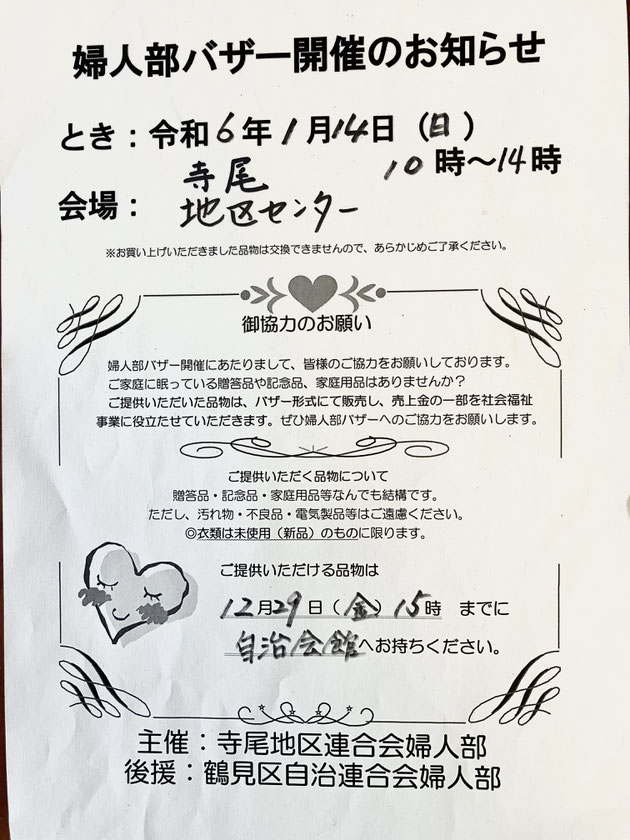 婦人部バザー開催のお知らせ
とき：令和6年1月14日（日）
10時～14時
会場：寺尾
地区センター
※お買い上げいただきました品物は交換できませんので、あらかじめご了承ください。
御協力のお願い
婦人部バザー開催にあたりまして、皆様のご協力をお願いしております。
ご家庭に眠っている贈答品や記念品、家庭用品はありませんか？
ご提供いただいた品物は、バザー形式にて販売し、売上金の一部を社会福祉
事業に役立たせていただきます。ぜひ婦人部バザーへのご協力をお願いします。
ご提供いただく品物について
贈答品・記念品・家庭用品等なんでも結構です。
ただし、汚れ物・不良品・電気製品等はご遠慮ください。
◎衣類は未使用（新品）のものに限ります。
ご提供いただける品物は
12月29日（金）15時　までに
自治会館へお持ちください。
主催：寺尾地区連合会婦人部
後援：鶴見区自治連合会婦人部